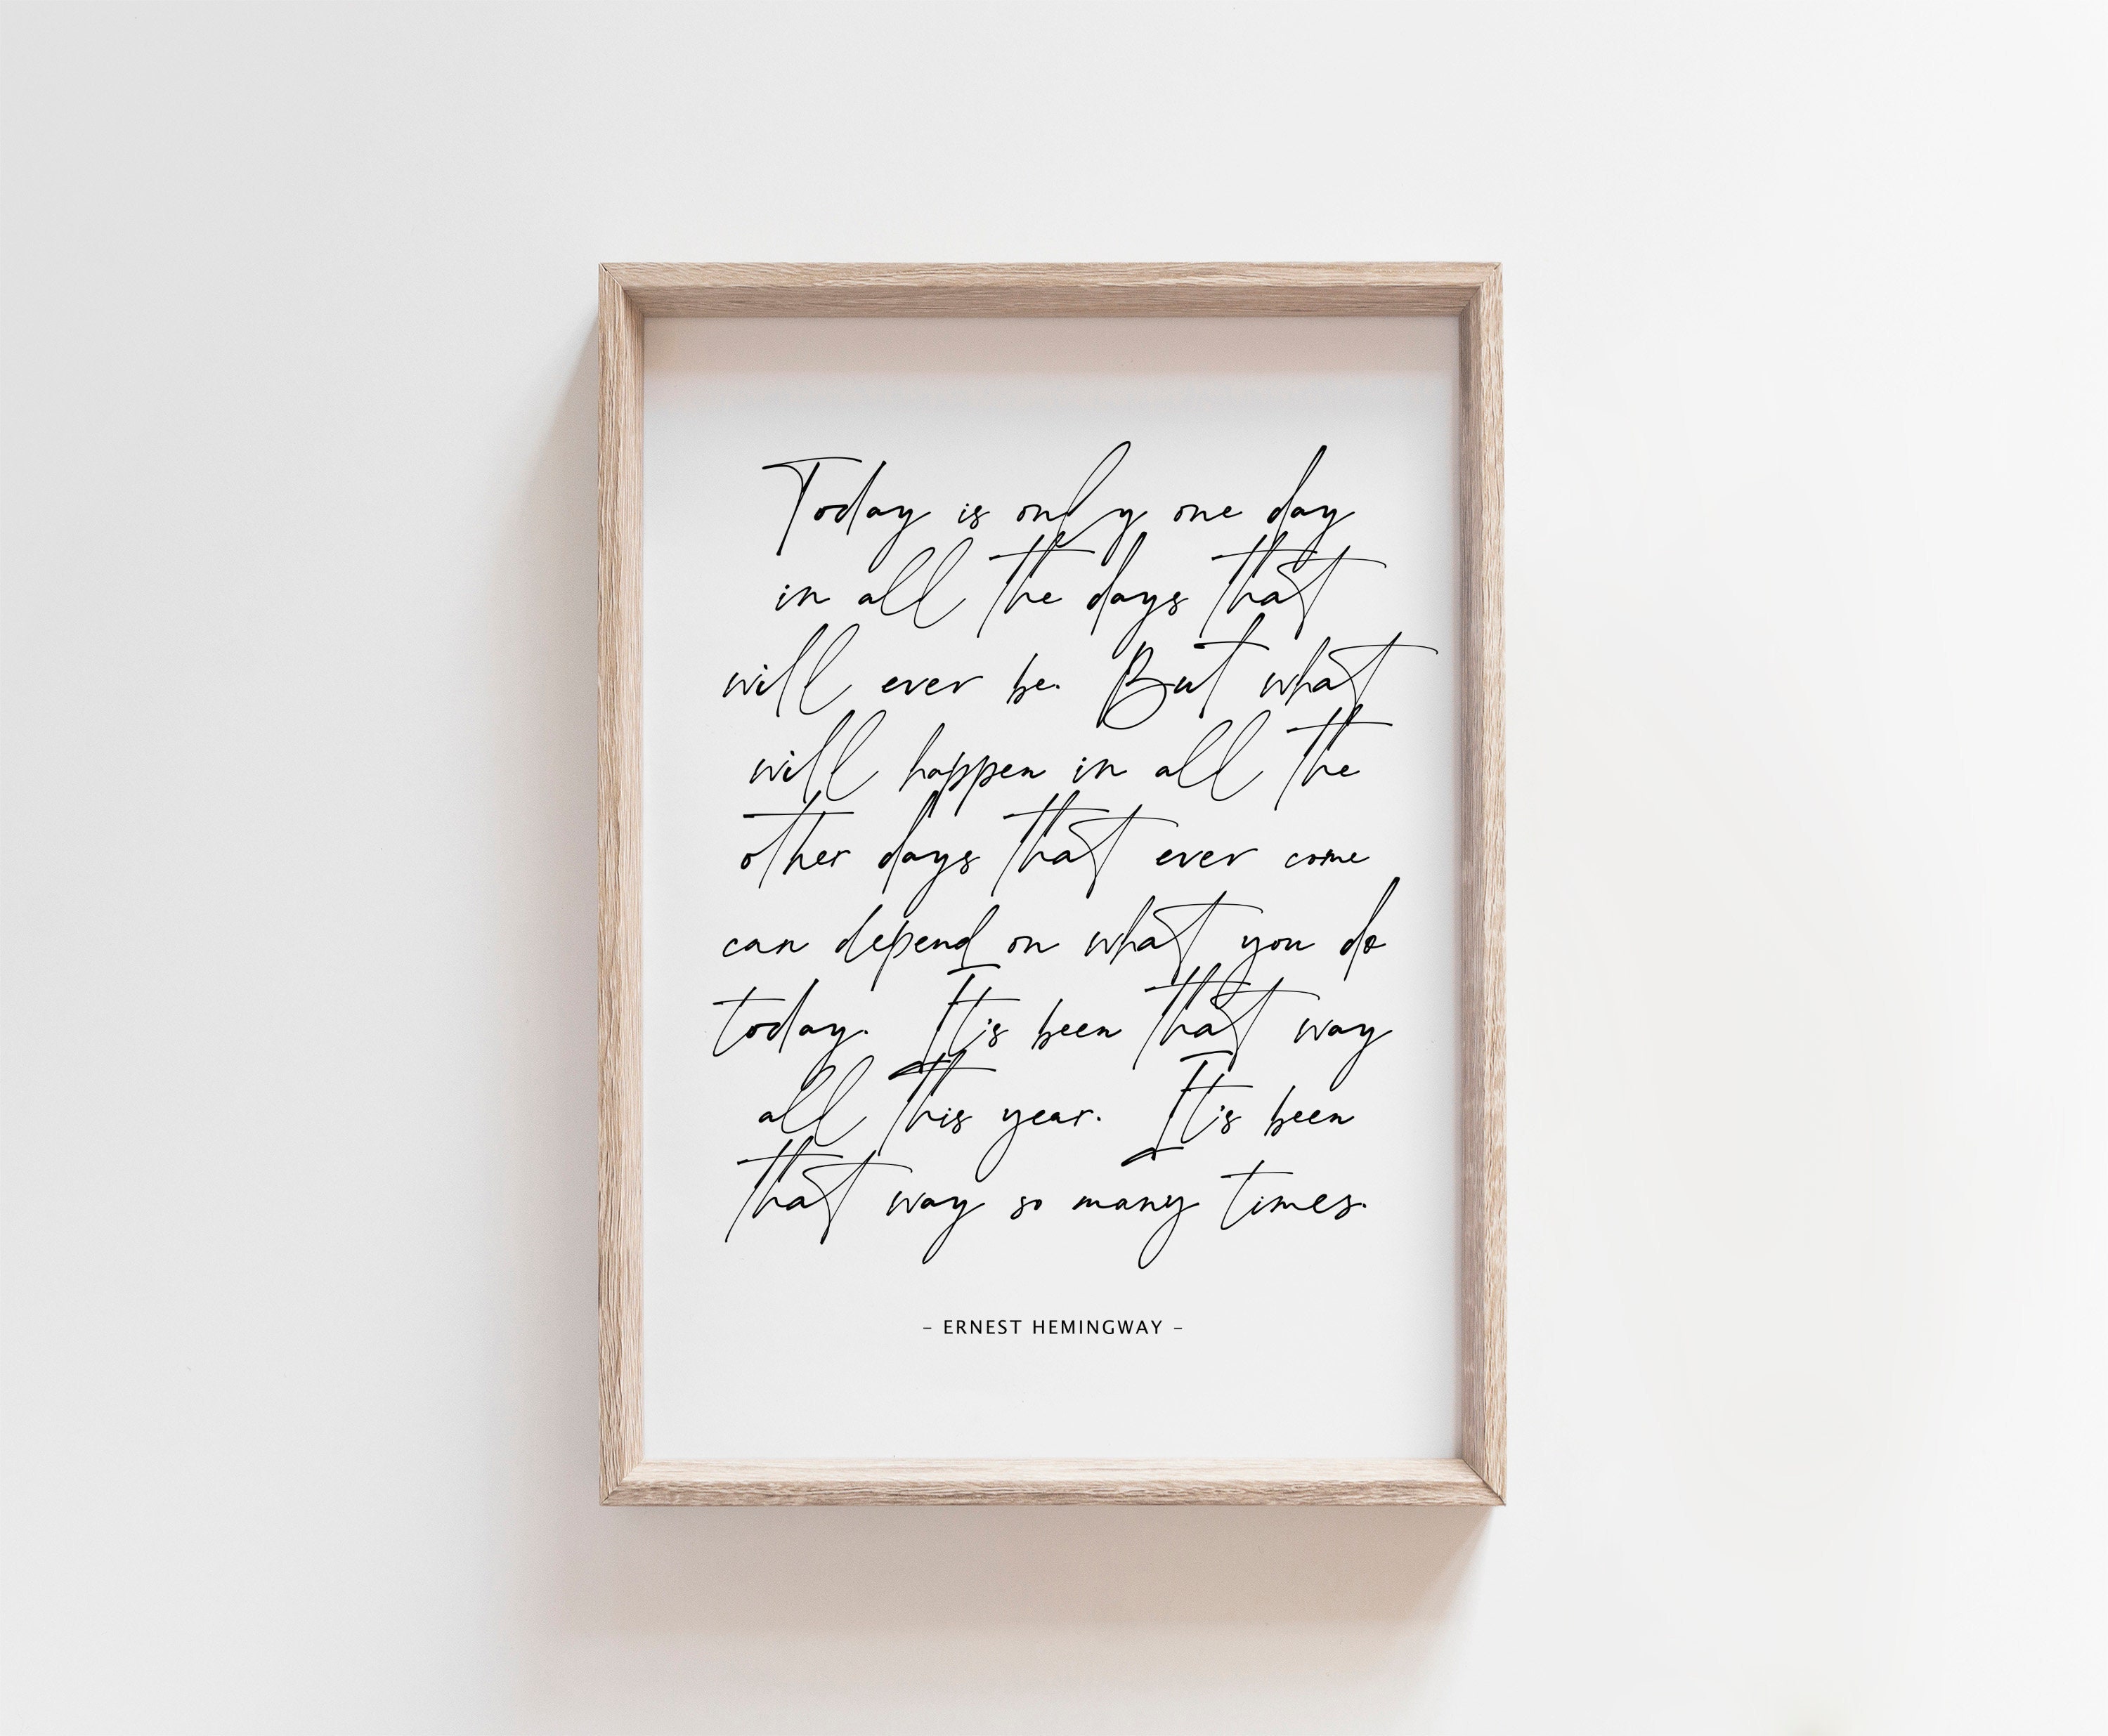 Today is only one day
in all the days that
will ever be. But what
will happen in all the
other days that ever come
can depend on what you do
today. It's been that way
all this year. It's been
that way so many times.
– ERNEST HEMINGWAY –